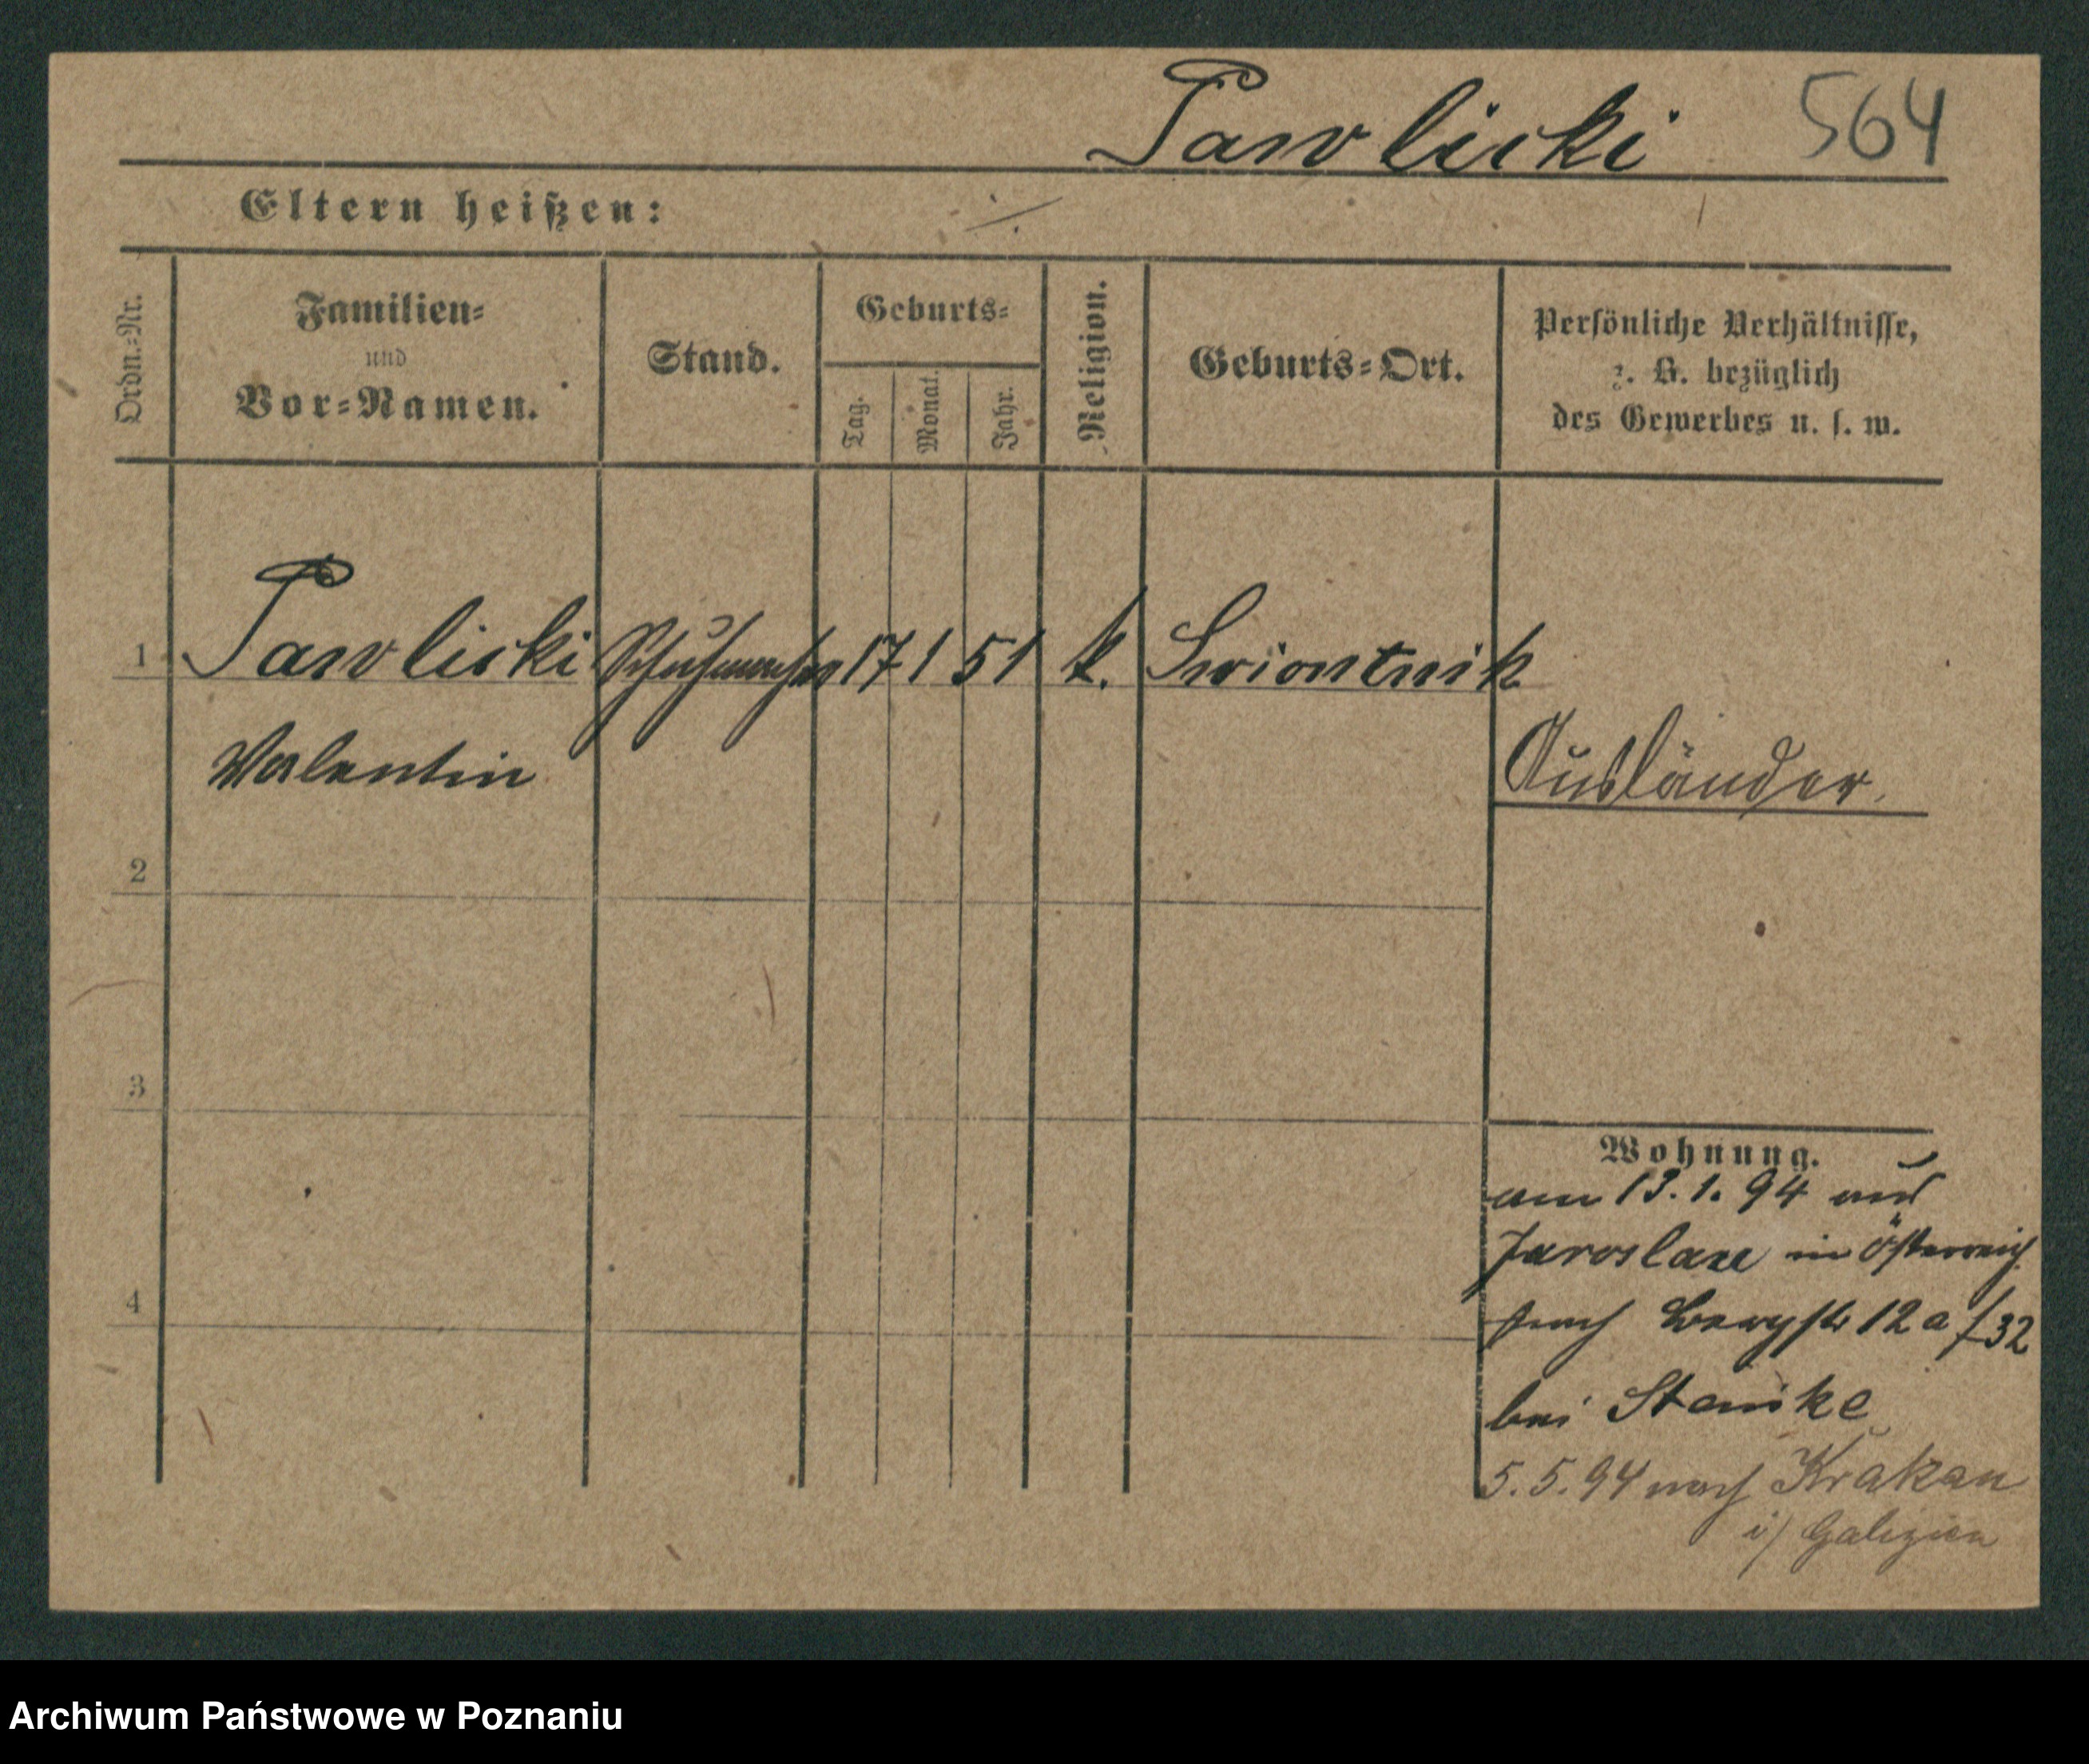 Pawlicki 564
Eltern heißen: ·/.
Ordn.-Nr.
Familien-
und
Vor-Namen.
Stand.
Geburts-
Tag.
Monat.
Jahr.
Religion.
Geburts-Ort.
Persönliche Verhältnisse,
z. B. bezüglich
des Gewerbes u. s. w.
1 Pawlicki Schuhmacher 17 1 51 k. Swiontnik
Valentin
Ausländer.
2
3
4
Wohnung.
am 13.1.94 aus
Jaroslau in Österreich
12a / 32
bei Stanike
5.5.94 nach Krakau
i/ Galizien
Archiwum Państwowe w Poznaniu